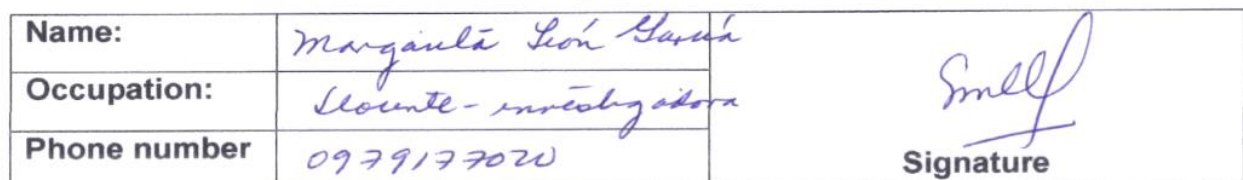 Name: Margarita León García
Occupation: Docente - investigadora
Phone number 0979177020
Signature